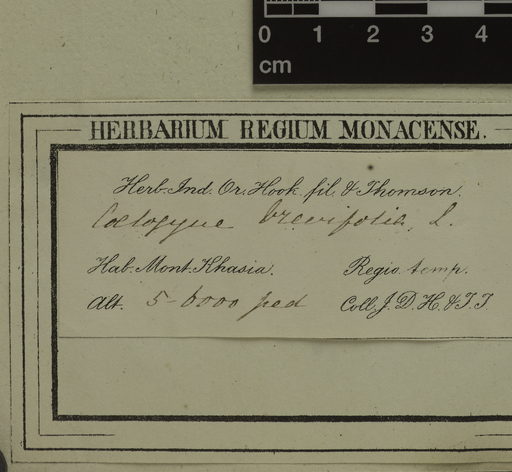 0 1 2 3 4
cm
HERBARIUM REGIUM MONACENSE.
Herb. Ind. Or. Hook. fil. & Thomson.
Coelogyne brevifolia, L.
Hab. Mont. Khasia. Regio temp.
Alt. 5-6000 ped Coll. J. D. H. & T. T.